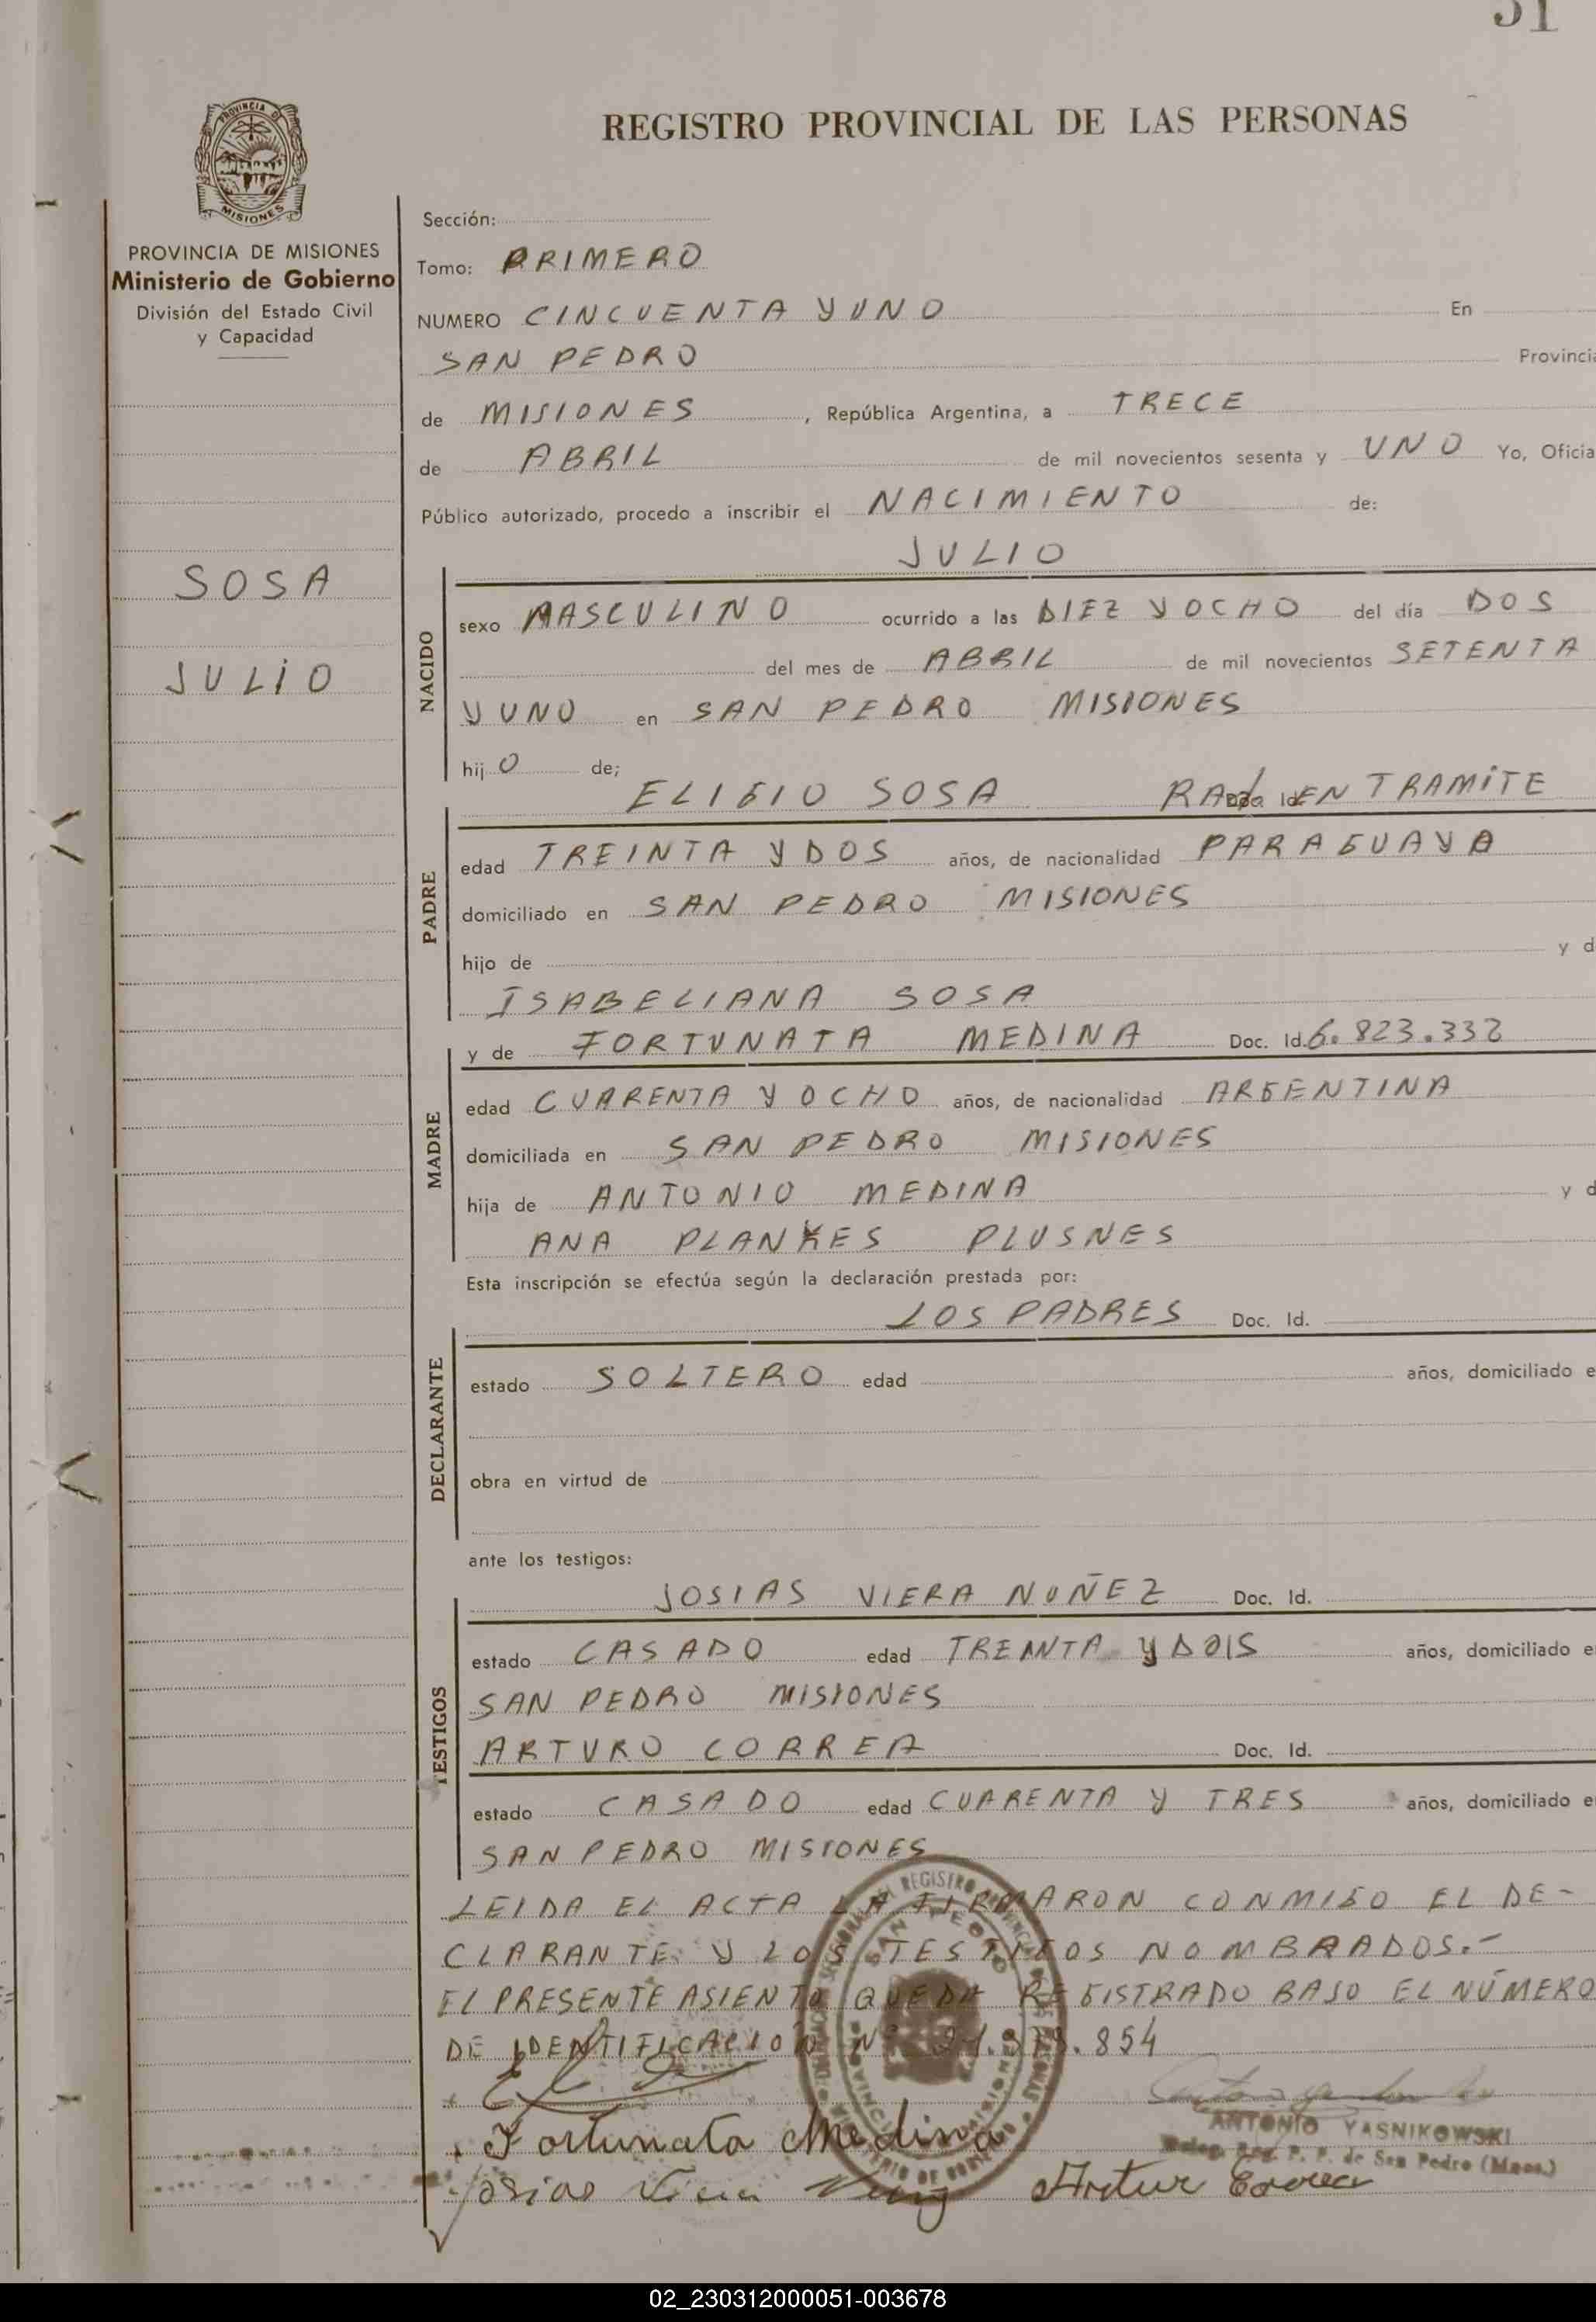 51
REGISTRO PROVINCIAL DE LAS PERSONAS
PROVINCIA DE
MISIONES
PROVINCIA DE MISIONES
Ministerio de Gobierno
División del Estado Civil
y Capacidad
SOSA
JULIO
Sección:
Tomo: PRIMERO
NUMERO CINCUENTA Y UNO En
SAN PEDRO Provincia
de MISIONES , República Argentina, a TRECE
de ABRIL de mil novecientos sesenta y UNO Yo, Oficia
Público autorizado, procedo a inscribir el NACIMIENTO de:
JULIO
NACIDO
sexo MASCULINO ocurrido a las DIEZ Y OCHO del día DOS
del mes de ABRIL de mil novecientos SETENTA
Y UNO en SAN PEDRO MISIONES
hij O de;
ELIGIO SOSA EN TRAMITE
PADRE
edad TREINTA Y DOS años, de nacionalidad PARAGUAYA
domiciliado en SAN PEDRO MISIONES
hijo de y d
ISABELIANA SOSA
y de FORTUNATA MEDINA Doc. Id. 6.823.332
MADRE
edad CUARENTA Y OCHO años, de nacionalidad ARGENTINA
domiciliada en SAN PEDRO MISIONES
hija de ANTONIO MEDINA y d
ANA PLANKES PLUSNES
Esta inscripción se efectúa según la declaración prestada por:
LOS PADRES Doc. Id.
DECLARANTE
estado SOLTERO edad años, domiciliado e
obra en virtud de
ante los testigos:
JOSIAS VIERA NUÑEZ Doc. Id.
TESTIGOS
estado CASADO edad TREINTA Y DOIS años, domiciliado e
SAN PEDRO MISIONES
ARTURO CORREA Doc. Id.
estado CASADO edad CUARENTA Y TRES años, domiciliado e
SAN PEDRO MISIONES
LEIDA EL ACTA LA FIRMARON CONMIGO EL DE-
CLARANTE Y LOS TESTIGOS NOMBRADOS.-
EL PRESENTE ASIENTO QUEDA REGISTRADO BAJO EL NÚMERO
DE IDENTIFICACIÓN Nº .854
SAN PEDRO
Fortunata Medina
ANTONIO YASNIKOWSKI
Deleg. Reg. P. P. de San Pedro (Mnes.)
Josias Viera Artur Correa
02_230312000051-003678